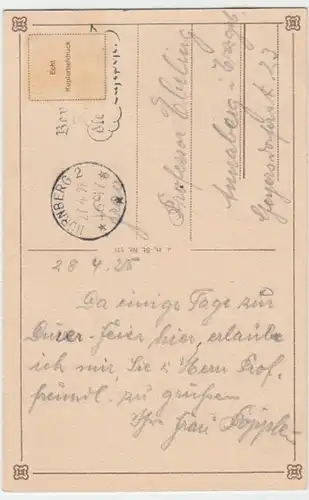 Echt
Kupfertiefdruck
NÜRNBERG 2
Professor Ebeling
Annaberg i. Erzgeb.
Geyersdorferstr. 23
28 4. 28
Da einige Tage zur
Dürer-Feier hier, erlaube
ich mir, Sie u. Herrn Prof.
freundl. zu grüßen
Ihr Frau